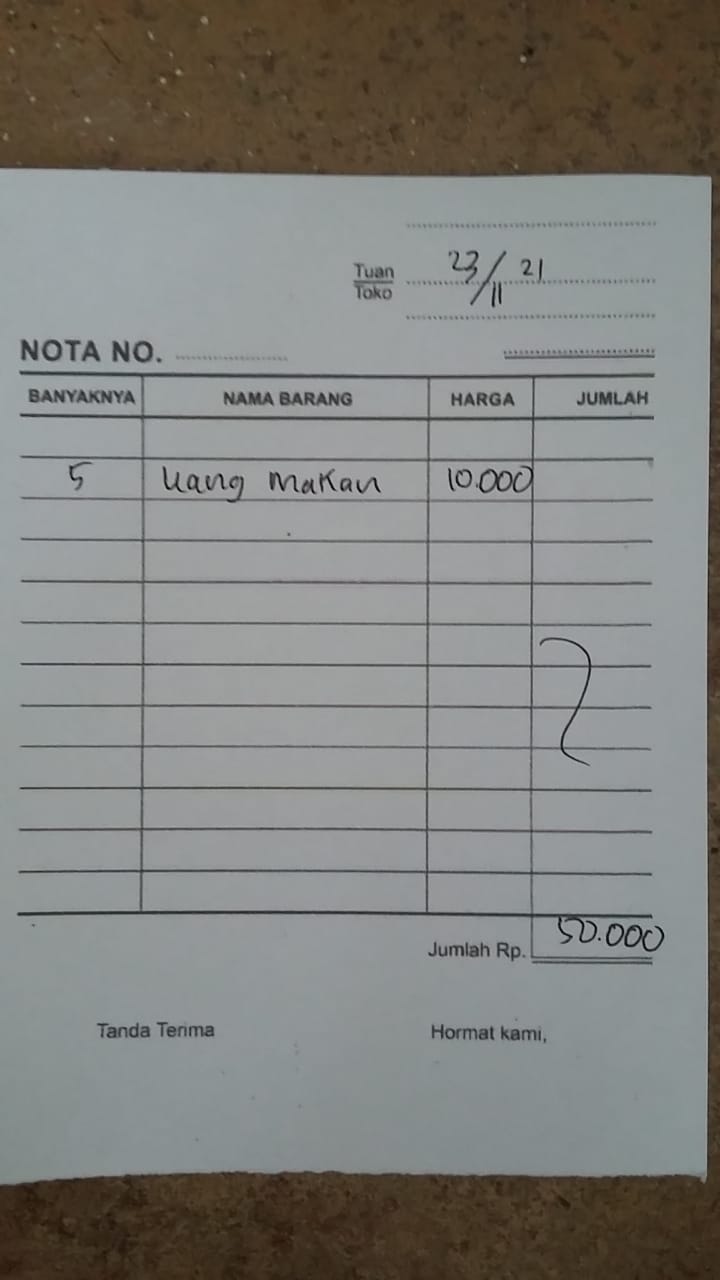 23/11 21
Tuan
Toko
NOTA NO.
BANYAKNYA NAMA BARANG HARGA JUMLAH
5 Uang Makan 10.000
Jumlah Rp. 50.000
Tanda Terima Hormat kami,